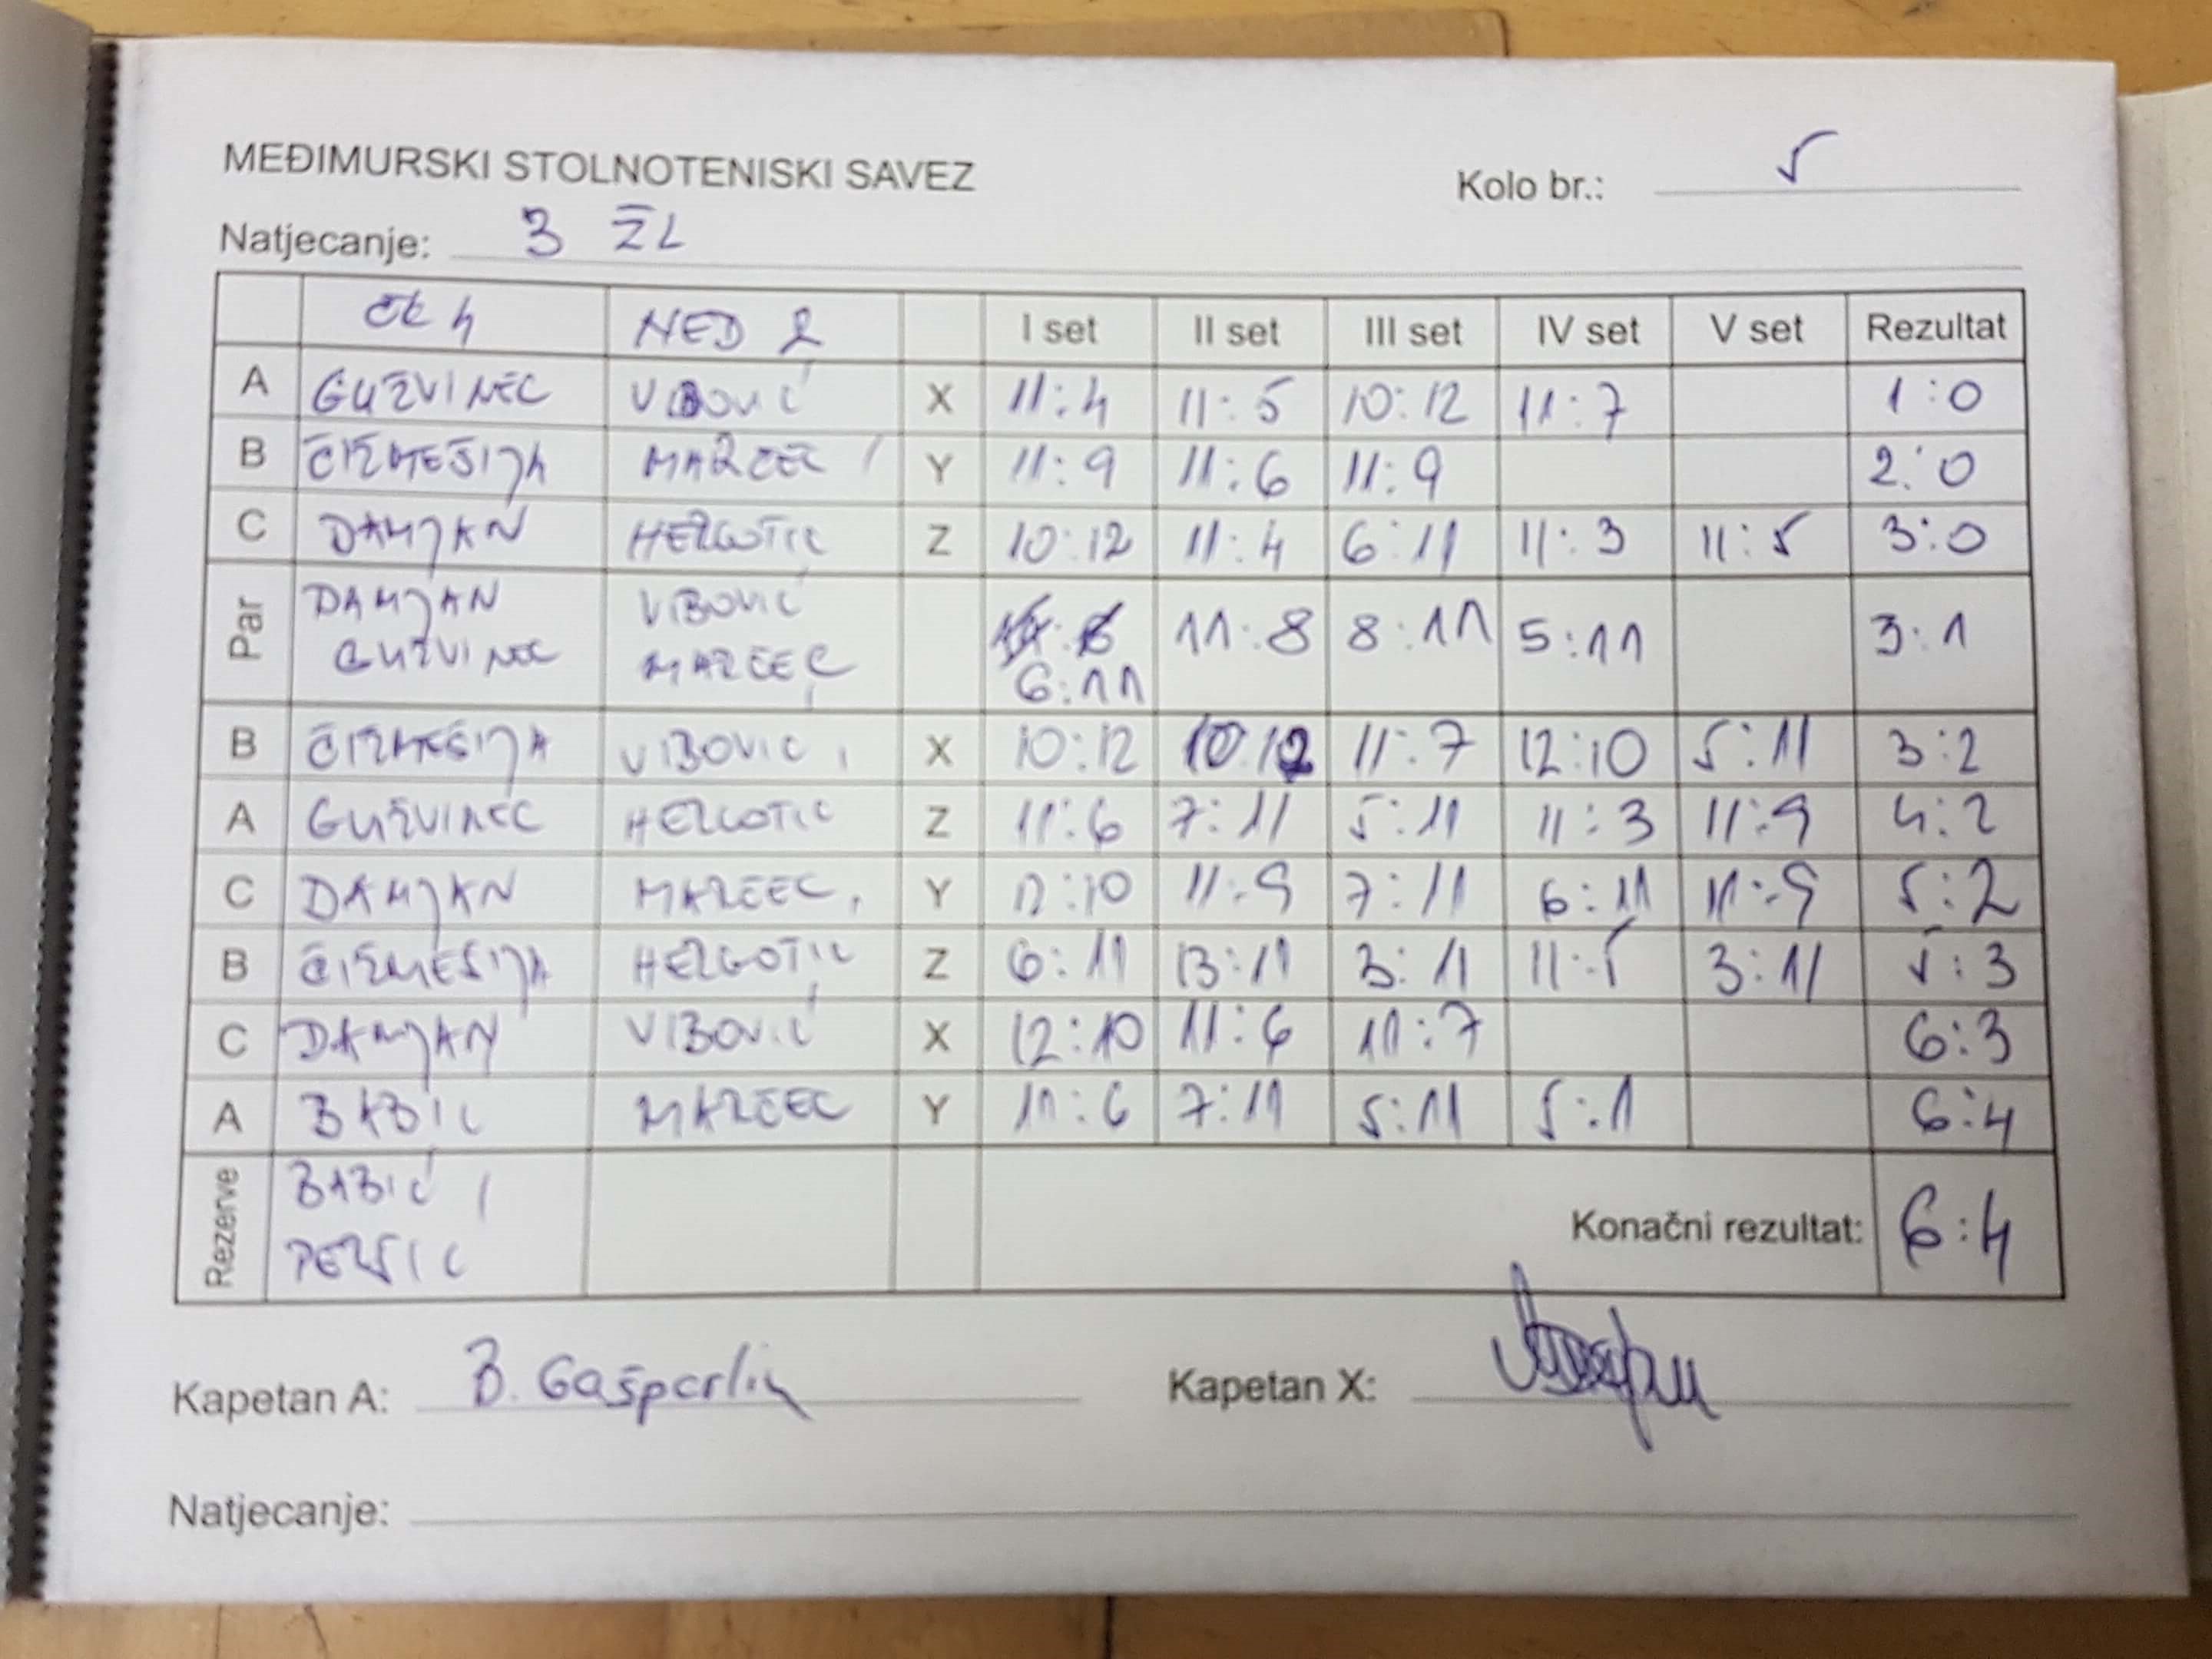 MEĐIMURSKI STOLNOTENISKI SAVEZ
Kolo br.: 5
Natjecanje: 3 ŽL
ČK 4 NED 2 I set II set III set IV set V set Rezultat
A GUŽVINEC VIBOVIĆ X 11:4 11:5 10:12 11:7 1:0
B ČIŽMEŠIJA MARČEC Y 11:9 11:6 11:9 2:0
C DAMJAN HERGOTIĆ Z 10:12 11:4 6:11 11:3 11:5 3:0
Par DAMJAN VIBOVIĆ 11:8 8:11 5:11 3:1
GUŽVINEC MARČEC 6:11
B ČIŽMEŠIJA VIBOVIĆ X 10:12 10:12 11:7 12:10 5:11 3:2
A GUŽVINEC HERGOTIĆ Z 11:6 7:11 5:11 11:3 11:9 4:2
C DAMJAN MARČEC Y 12:10 11:9 7:11 6:11 11:9 5:2
B ČIŽMEŠIJA HERGOTIĆ Z 6:11 13:11 3:11 11:5 3:11 5:3
C DAMJAN VIBOVIĆ X 12:10 11:6 11:7 6:3
A BABIĆ MARČEC Y 11:6 7:11 5:11 5:11 6:4
Rezerve BABIĆ,
Konačni rezultat: 6:4
Kapetan A: B. Gašparlin
Kapetan X:
Natjecanje: